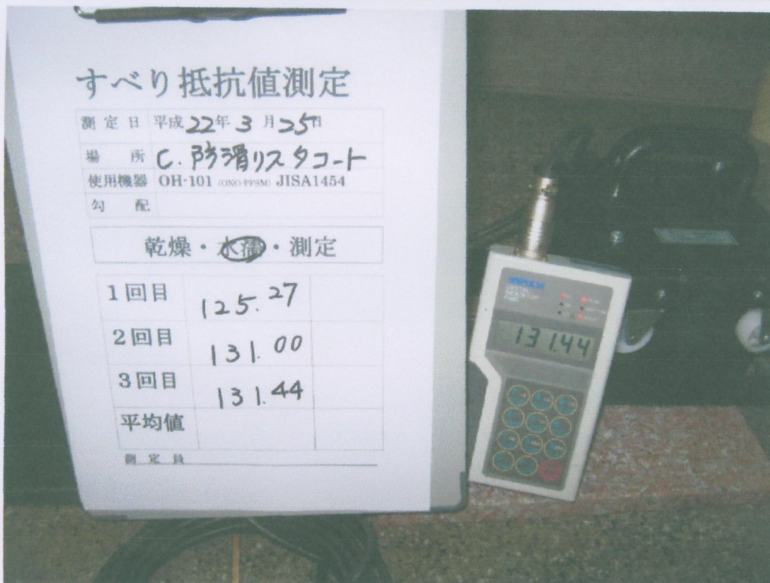 すべり抵抗値測定
測定日 平成22年3月25日
場所 C.防滑リスタコート
使用機器 OH-101 (ONO・PPSM) JISA1454
勾配
乾燥・水濡・測定
1回目 125.27
2回目 131.00
3回目 131.44
平均値
測定員
131.44